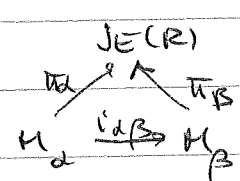 JE(R)
πα πβ
Mα iαβ Mβ